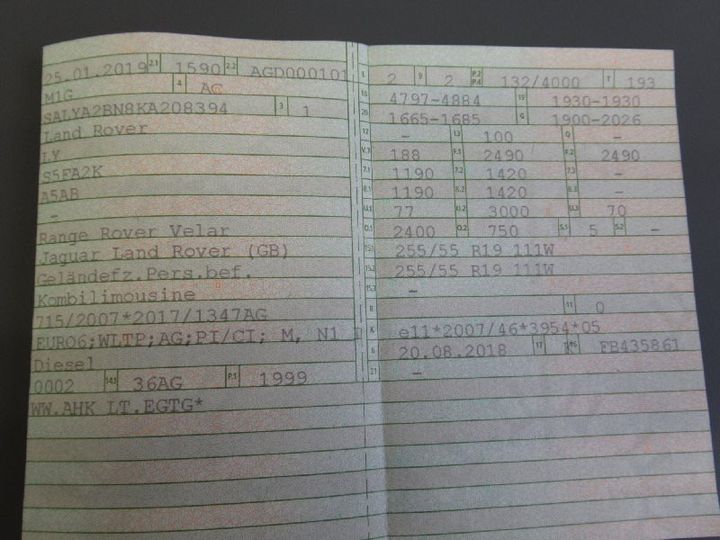 25.01.2019 2.1 1590 2.2 AGD000101
M1G 4 AC
SALYA2BN8KA208394 3 1
Land Rover
LY
S5FA2K
A5AB
-
Range Rover Velar
Jaguar Land Rover (GB)
Geländefz.Pers.bef.
Kombilimousine
715/2007*2017/1347AG
EURO6;WLTP;AG;PI/CI; M, N1
Diesel
0002 14.1 36AG P.1 1999
WW.AHK LT.EGTG*
L 2 9 2 P.2 P.4 132/4000 T 193
18 4797-4884 19 1930-1930
20 1665-1685 G 1900-2026
12 - 13 100 Q -
V.7 188 F.1 2490 F.2 2490
7.1 1190 7.2 1420 7.3 -
8.1 1190 8.2 1420 8.3 -
U.1 77 U.2 3000 U.3 70
O.1 2400 O.2 750 S.1 5 S.2 -
15.1 255/55 R19 111W
15.2 255/55 R19 111W
15.3 -
R 11 0
K e11*2007/46*3954*05
6 20.08.2018 17 16 FB435861
21 -